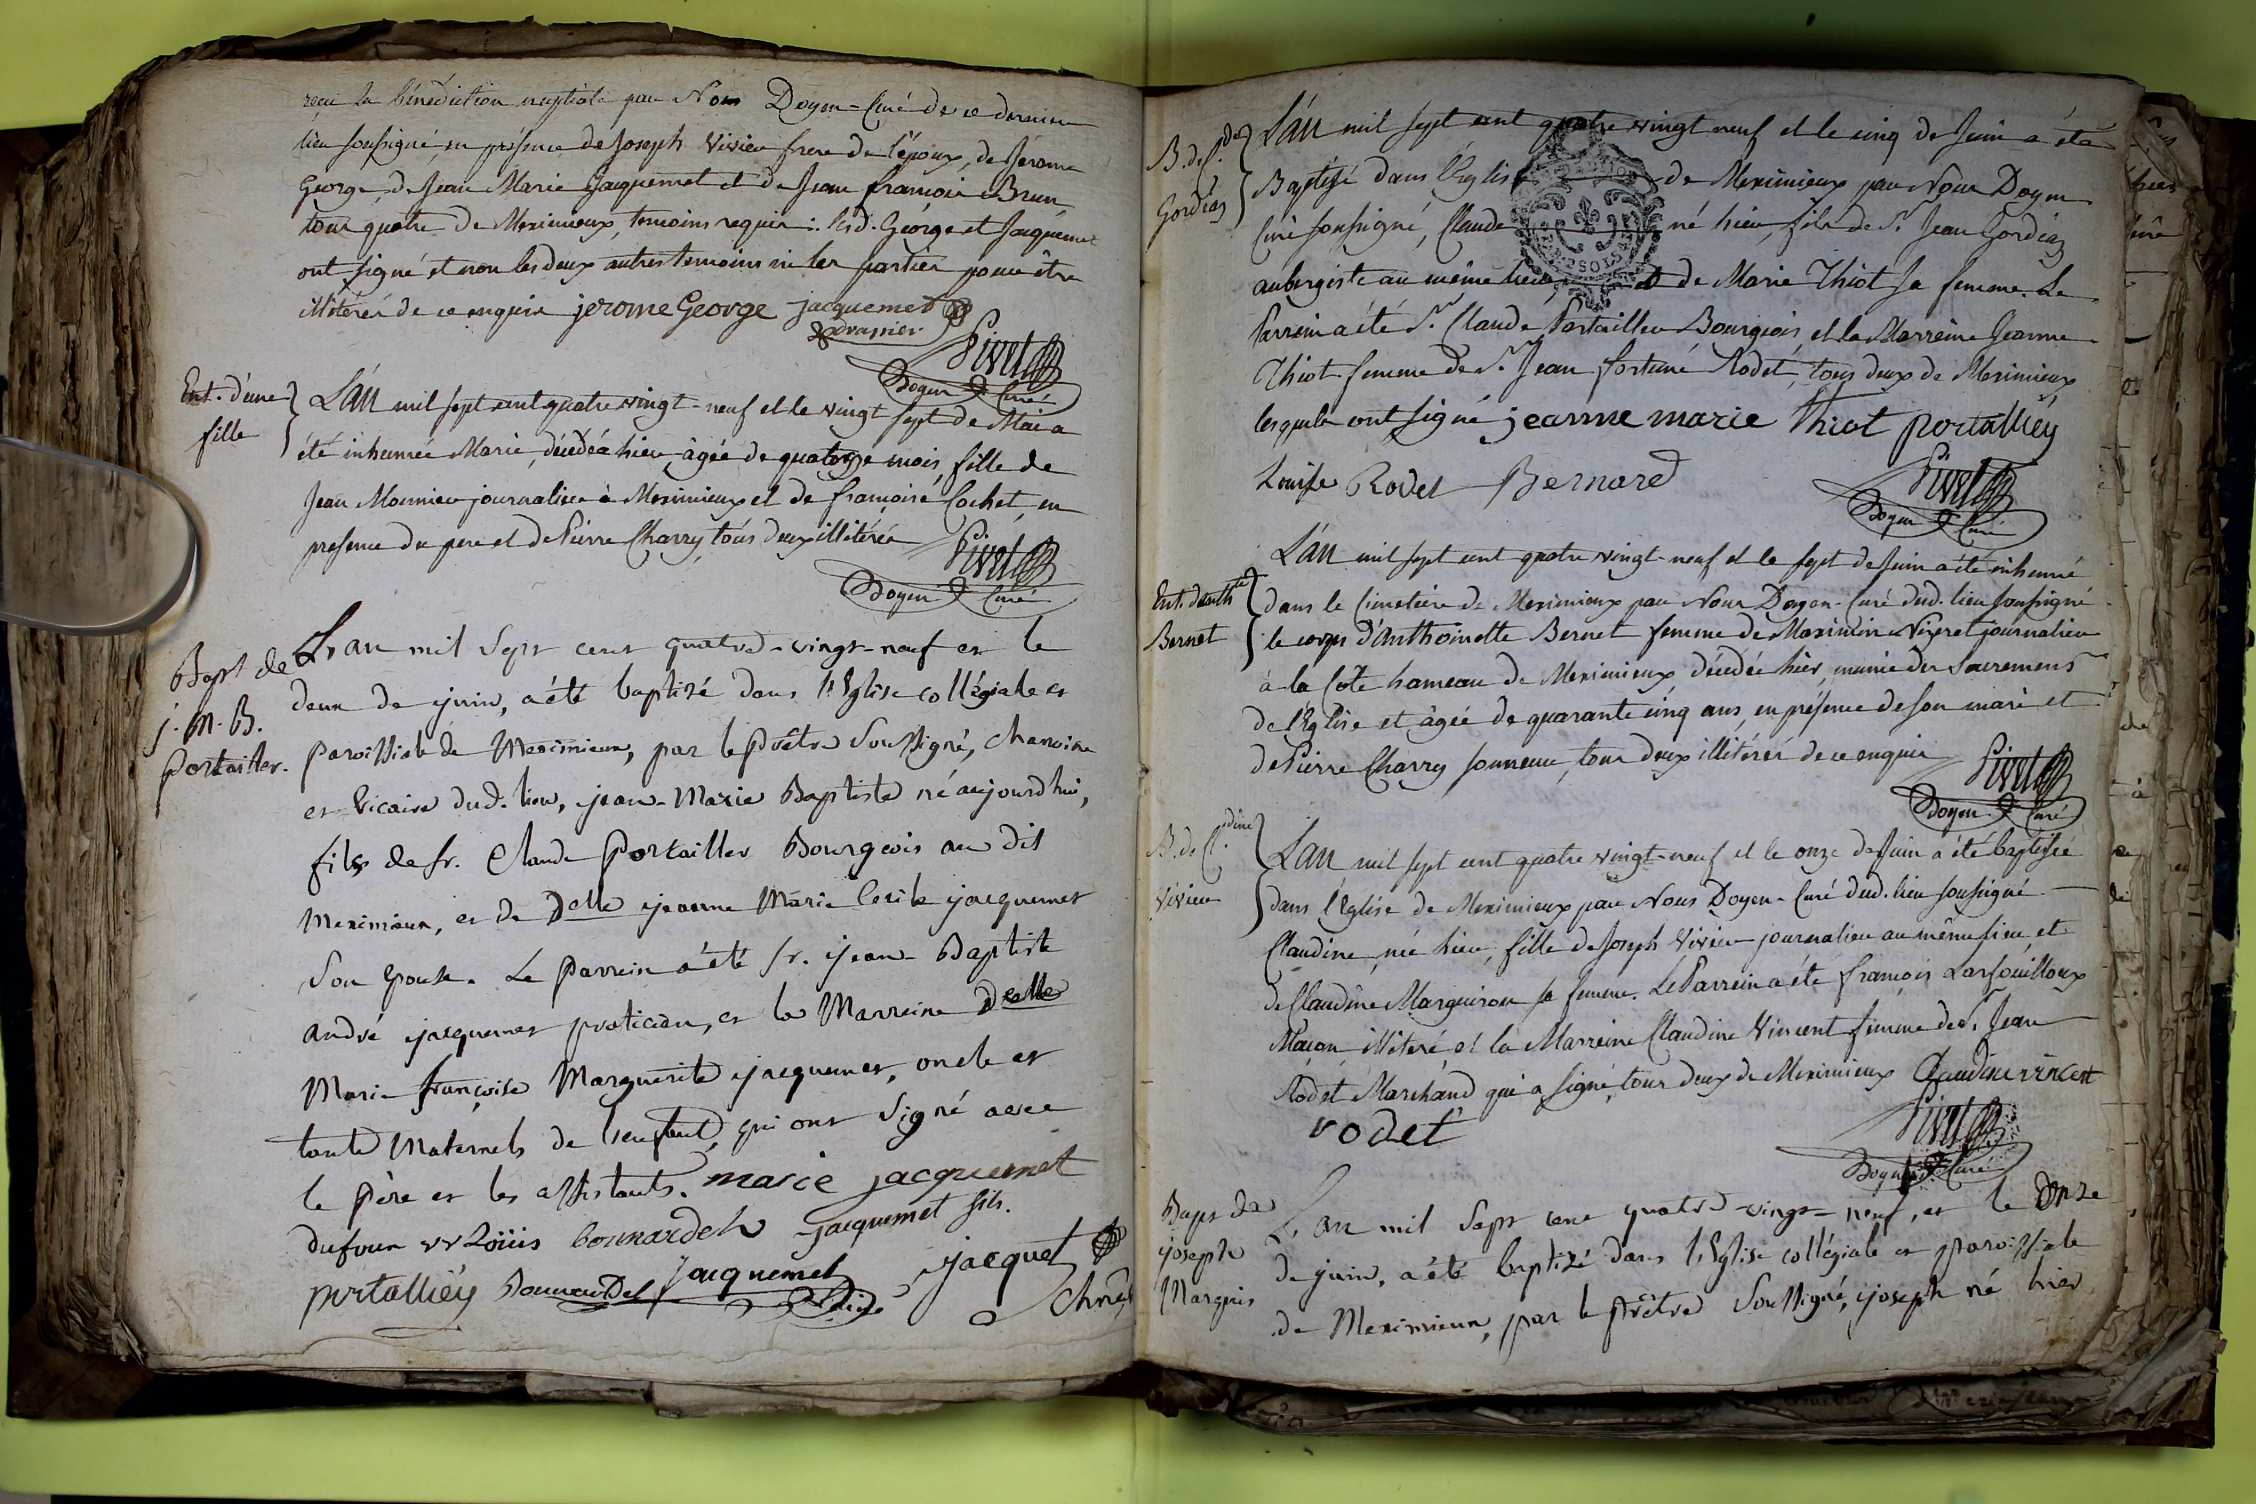 reçu la bénédiction nuptiale par Nous Doyen-Curé de ce dernier
lieu soussigné, en présence de Joseph Vivier frere de l'époux, de Jérome
George, de Jean Marie Jacquemet et de Jean françois Brun
tous quatre de Meximieux, temoins requis: lesd. George et Jacquemet
ont signé et non les deux autres temoins ni les parties pour être
illitérés de ce enquis jerome George jacquemet
Pivet
Doyen & Curé
Ent. d'une
fille
L'an mil sept cent quatre vingt-neuf et le vingt sept de Mai a
été inhumée Marie, décédée hier, âgée de quatorze mois, fille de
Jean Monnier journalier à Meximieux et de françoise Cochet, en
presence du pere et de Pierre Charry, tous deux illitérés
Pivet
Doyen & Curé
Bapt de
j. M. B.
Portailler.
L'an mil Sept cent quatre-vingt-neuf et le
deux de juin, a été baptizé dans l'Eglise collégiale et
paroissiale de Meximieux, par le Prêtre Soussigné, chanoine
et Vicaire dud. lieu, jean-Marie Baptiste né aujourdhui,
fils de sr. Claude Portailler Bourgeois au dit
Meximieux, et de Delle jeanne Marie Cécile jacquemet
Son Epouse. Le Parrein a été sr. jean-Baptiste
andré jacquemet praticien, et la Marreine Delle
Marie françoise Marguerite jacquemet, oncle et
tante Maternels de l'enfant, qui ont Signé avec
le Père et les assistants. marie jacquemet
dufour Loüis bonnardel jacquemet fils.
portalliéy Bonnardel jacquemet jacquet
B. de Cl.de
Gordiaz
L'an mil sept cent quatre vingt neuf et le cinq de Juin a été
Baptisé dans l'Eglise de Meximieux par Nous Doyen
Curé soussigné, Claude né hier, fils de Sr. Jean Gordiaz
aubergiste au même lieu, et de Marie Thiot sa femme. Le
Parrein a été Sr. Claude Portailler Bourgeois, et la Marreine Jeanne
Thiot femme de Sr. Jean fortuné Rodet, tous deux de Meximieux,
lesquels ont signé jeanne marie Thiot portalliéy
Louise Rodet Bernard
Pivet
Doyen & Curé
Ent. d'anth.te
Bernet
L'an mil sept cent quatre vingt-neuf et le sept de Juin a été inhumé
dans le Cimetière de Meximieux par Nous Doyen-Curé dud. lieu soussigné
le corps d'Anthoinette Bernet femme de Maximin Nizeret journalier
à la Côte hameau de Meximieux décédée hier, munie des Sacremens
de l'Eglise et âgée de quarante cinq ans, en présence de son mari et
de Pierre Charry sonneur, tous deux illitérés de ce enquis
Pivet
Doyen & Curé
B. de Cl.dine
Vivier
L'an mil sept cent quatre vingt-neuf et le onze de Juin a été baptisée
dans l'Eglise de Meximieux par Nous Doyen-Curé dud. lieu soussigné
Claudine, née hier, fille de Joseph Vivier journalier au même lieu, et
de Claudine Marguiron sa femme. Le Parrein a été françois Larfouilloux
Maçon illitéré, et la Marreine Claudine Vincent femme de Sr. Jean
Rodet Marchand qui a signé, tous deux de Meximieux Claudine vincent
rodet
Pivet
Doyen & Curé
Bapt de
joseph
Marquis
L'an mil Sept cent quatre-vingt-neuf, et le Onze
de juin, a été baptizé dans l'Eglise collégiale et paroissiale
de Meximieux, par le Prêtre Soussigné, joseph né hier